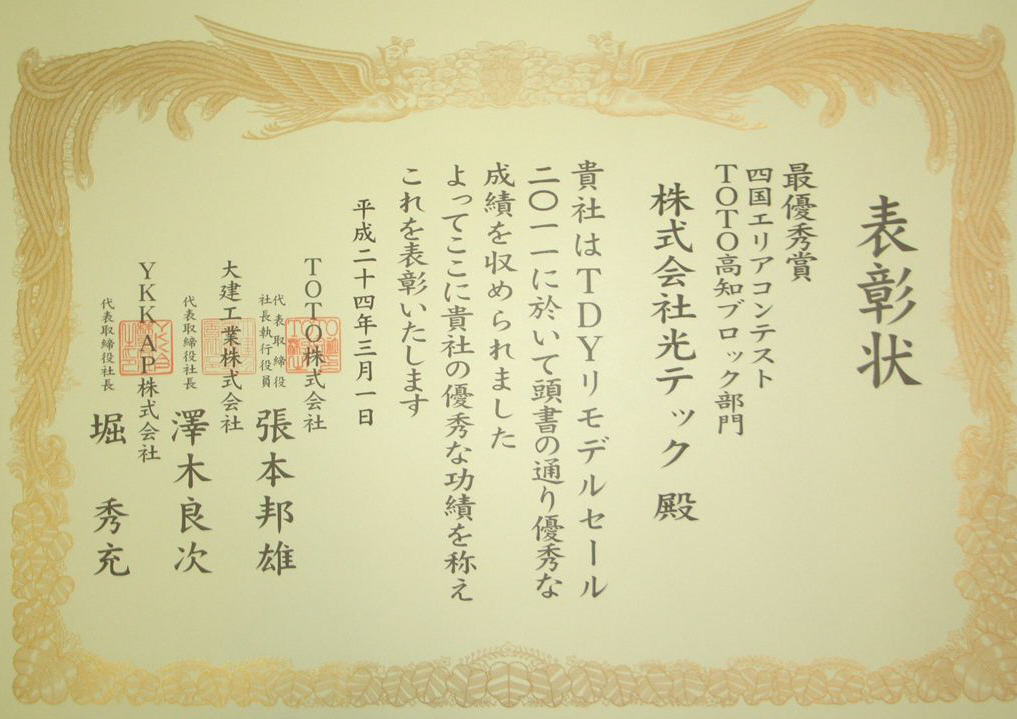 表彰状
最優秀賞
四国エリアコンテスト
TOTO高知ブロック部門
株式会社光テック 殿
貴社はTDYリモデルセール
二〇一一に於いて頭書の通り優秀な
成績を収められました
よってここに貴社の優秀な功績を称え
これを表彰いたします
平成二十四年三月一日
TOTO株式会社
代表取締役
社長執行役員
張本邦雄
大建工業株式会社
代表取締役社長 澤木良次
YKKAP株式会社
代表取締役社長 堀 秀充